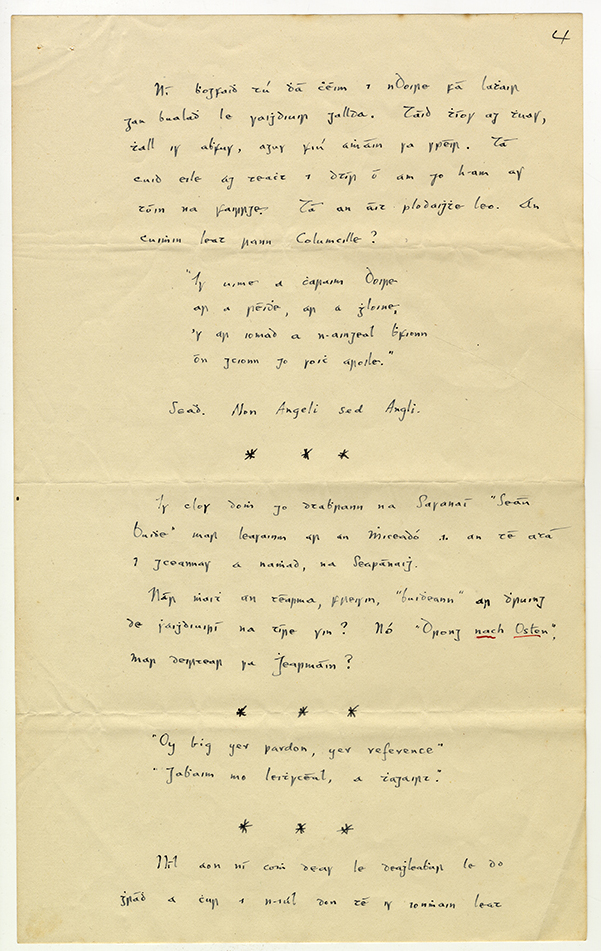 4
Ní ḃogfaiḋ tú ḋá ċéim i nDoire fá láṫair
gan bualaḋ le saiġdiuir gallda. Táid ṫíos ag ṫuas,
ṫall is aḃfus, agus fiú aṁáin sa spéir. Tá
cuid eile ag teaċt i dtír ó am go h-am as
tóin na fairrge. Tá an áit plodaiġṫe leo. An
cuiṁin leat rann Columcille?
"Is uime a ċaraim Doire
ar a réiḋe, ar a ġloine,
's ar iomad a n-aingeal ḃfionn
ón gcionn go roiċ aroile."
Seaḋ. Non Angeli sed Angli.
* * *
Is clos doṁ go dtaḃrann na Sasanaí "Seán
Buiḋe" mar leasainm ar an Miceadó .i. an té atá
i gceannas a naṁad, na Seapánaiġ.
Nár ṁaiṫ an téarma, freisin, "buiḋeann" ar ḋruing
de ṡaiġdiuirí na tíre sin? Nó "Drong nach Osten",
mar deirtear sa Ġearmáin?
* * *
"Oy big yer pardon, yer reference"
"Gaḃaim mo leiṫscéul, a ṫagairt."
* * *
Níl aon ní coṁ deas le deaġleaḃar le do
ġráḋ a ċur i n-iúl don té is ionṁain leat